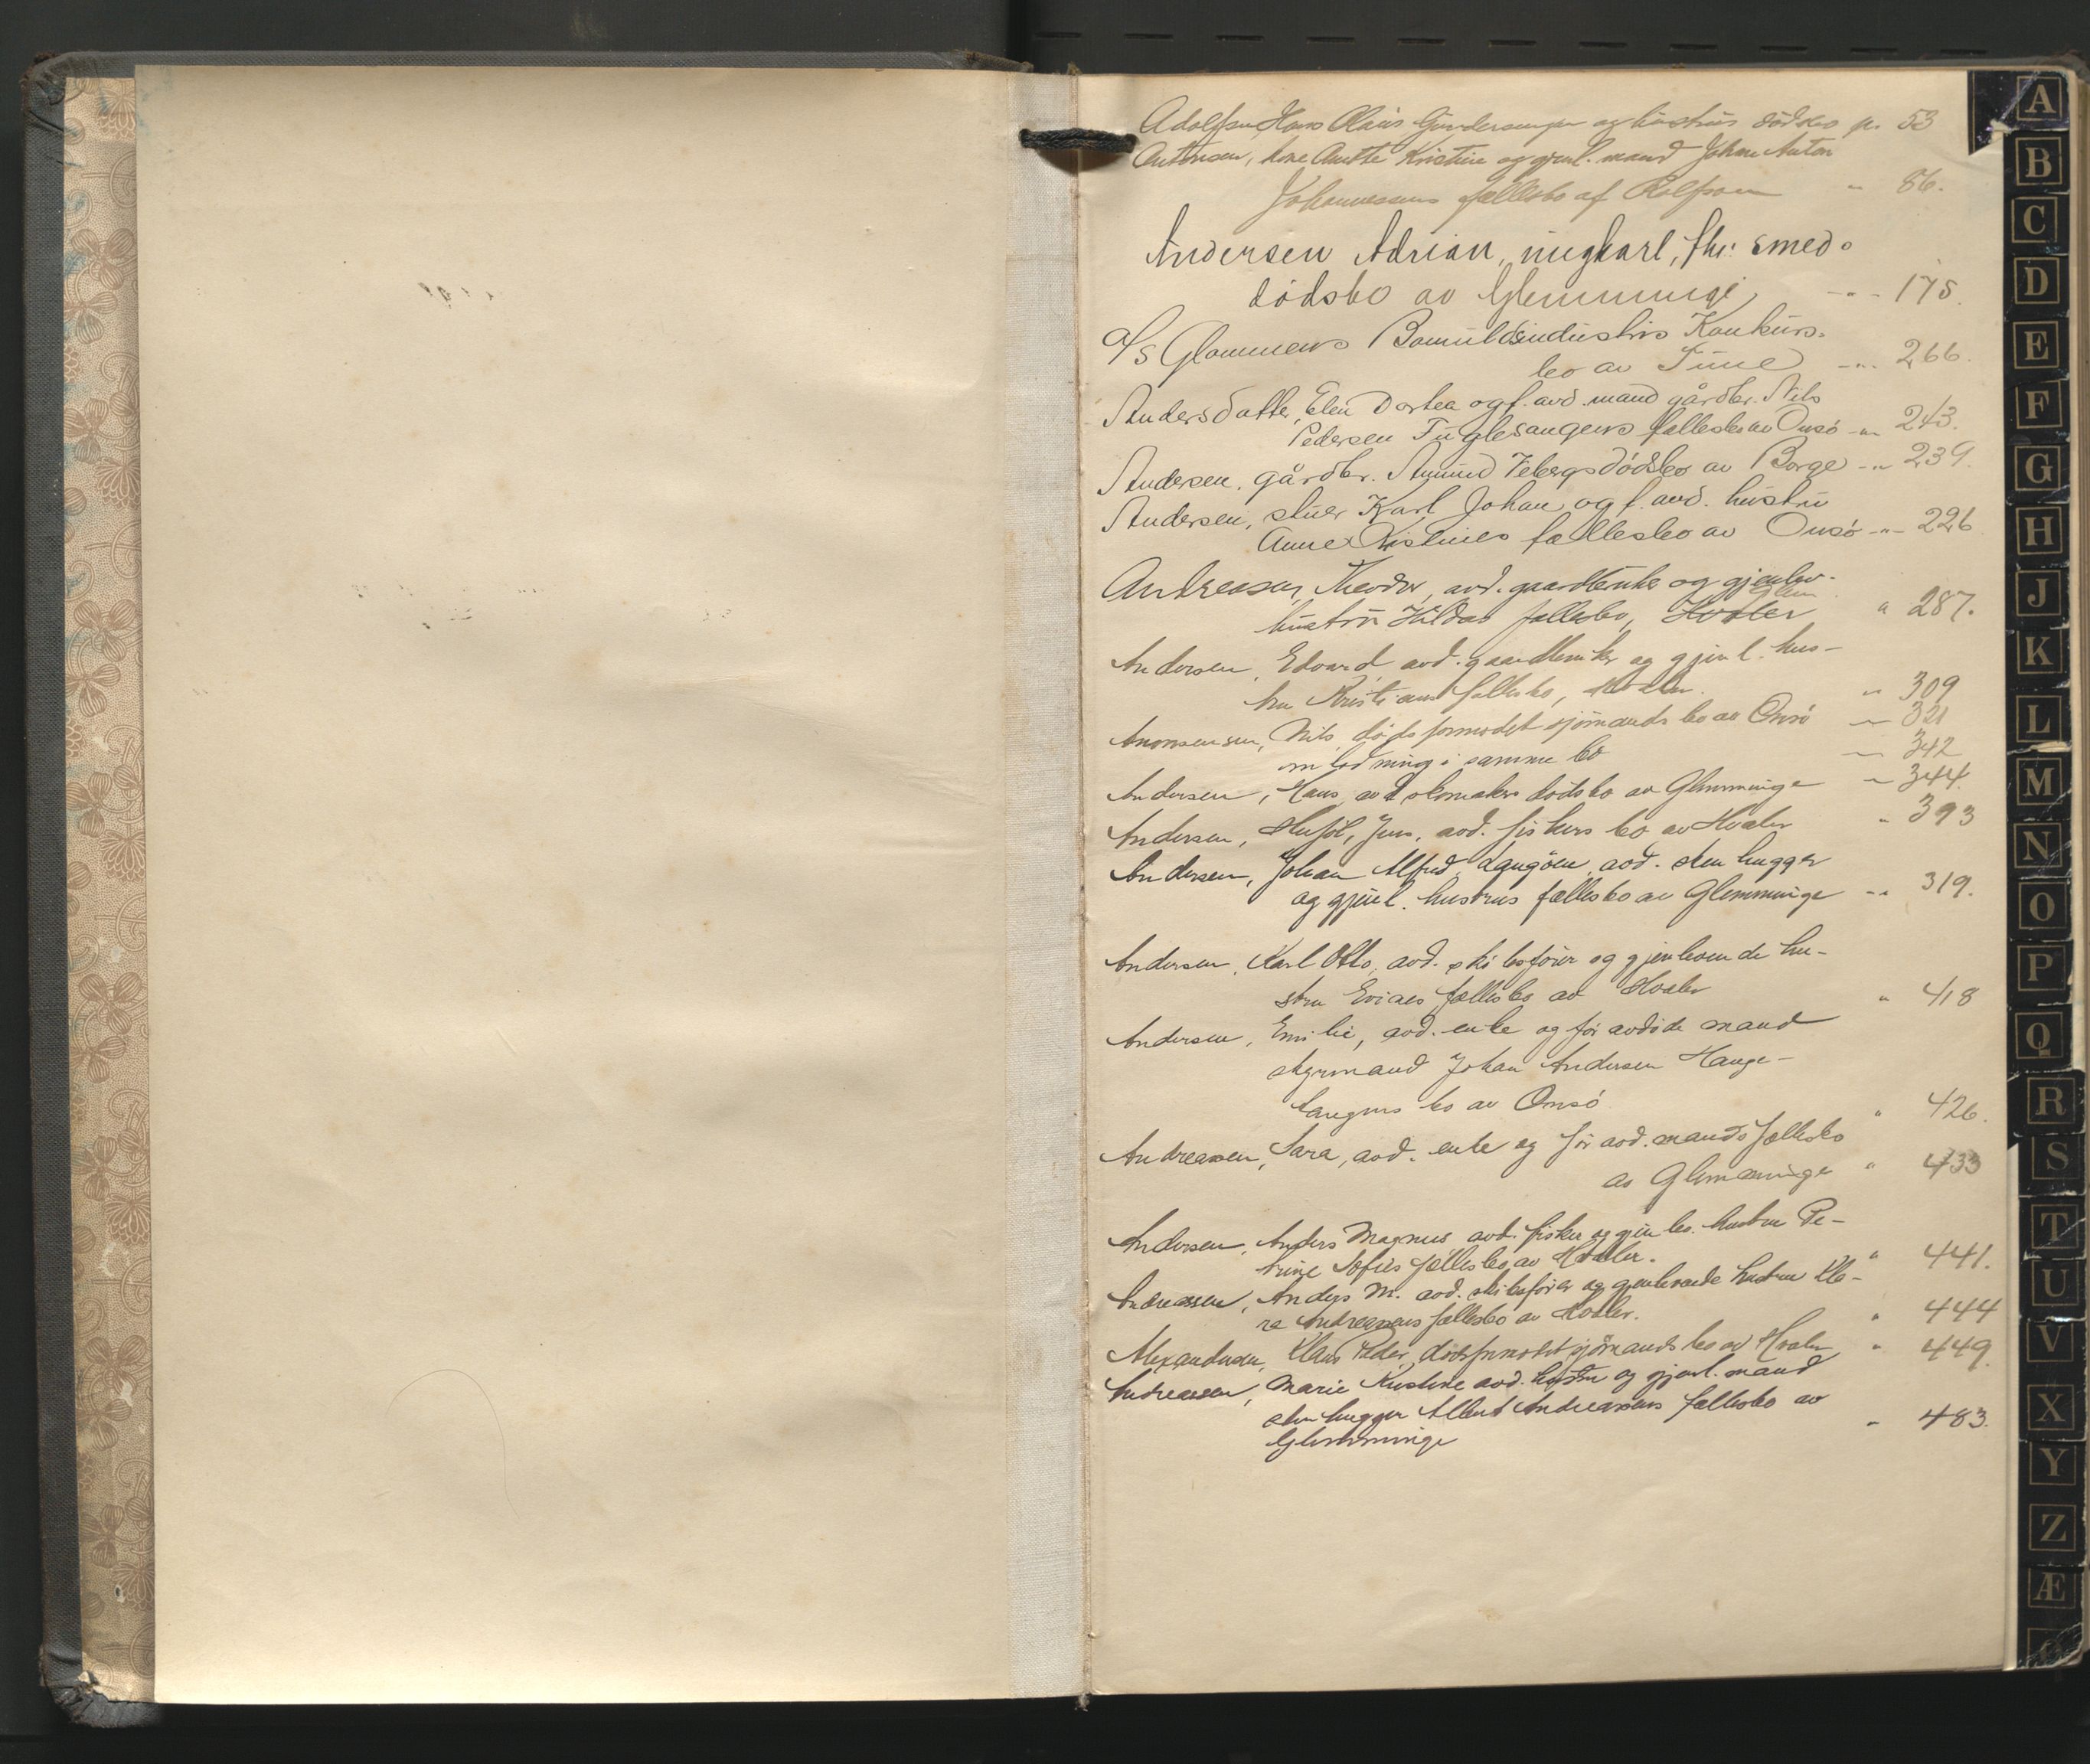 Adolfsen Hans Olaus Gundersengen og hustrus dødsbo pr. 53
Antonsen, kone Anette Kristine og gjenl. mand Johan Anton
Johannessens fællesbo af Rolfsøen " 86.
Andersen Adrian, ungkarl, fhv. smed.
dødsbo av Glemminge - " - 175.
A/S Glommens Bomuldsindustris Konkurs-
bo av Tune - " - 266.
Andersdatter, Elen Dortea og f. avd. mand gårdbr. Nils
Pedersen Fuglesangens fællesbo av Onsø - " - 243.
Andersen, gårdbr. Amund Vebergs dødsbo av Borge - " 239.
Andersen, stuer Karl Johan og f. avd. hustru
Anne Kristines fællesbo av Onsø - " - 226
Andreasen, Theodor, avd. gaardbruker og gjenlev.
Glem
hustru Hildas fællesbo, Hvaler " 287.
Andersen, Edvard avd. gaardbruker og gjenl. hus-
tru Kristians fællesbo, Hvaler. " 309
Nils dødsformodet sjømands bo av Onsø " 321
omlodning i samme bo " 342
Andersen, Hans, avd. skomakers dødsbo av Glemminge " 344.
Andersen, Jun. avd. fiskers bo av Hvaler " 393
Andersen, Johan Alfred, Langøen, avd. stenhugger
og gjenl. hustrus fællesbo av Glemminge " 319.
Andersen, Karl Otto, avd. skibsfører og gjenlevende hu-
stru fællesbo av Hvaler " 418
Andersen, Emilie, avd. enke og før avdøde mand
styrmand Johan Andersen Hauge-
tangens bo av Onsø " 426.
Andreassen, Sara, avd. enke og før avd. mands fællesbo
av Glemminge " 433
Andersen, Anders Magnus avd. fisker og gjenlev. hustru Pe-
trine Sofies fællesbo av Hvaler. " 441.
Andreassen, Anders M. avd. skibsfører og gjenlevende hustru Kla-
ra Andreassens fællesbo av Hvaler. " 444
Alexandersen, Klaus Peder, dødsformodet sjømands bo av Hvaler " 449.
Andreassen, Marie Kristine avd. hustru og gjenl. mand
stenhugger Albert Andreassens fællesbo av " 483.
Glemminge
A
B
C
D
E
F
G
H
J
K
L
M
N
O
P
Q
R
S
T
U
V
X
Y
Z
Æ